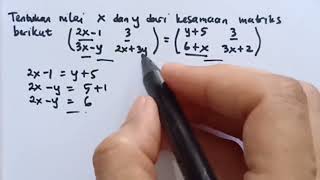 Tentukan nilai x dan y dari kesamaan matriks
berikut (2x-1 3 3x-y 2x+3y) = (y+5 3 6+x 3x+2)
2x-1 = y+5
2x-y = 5+1
2x-y = 6